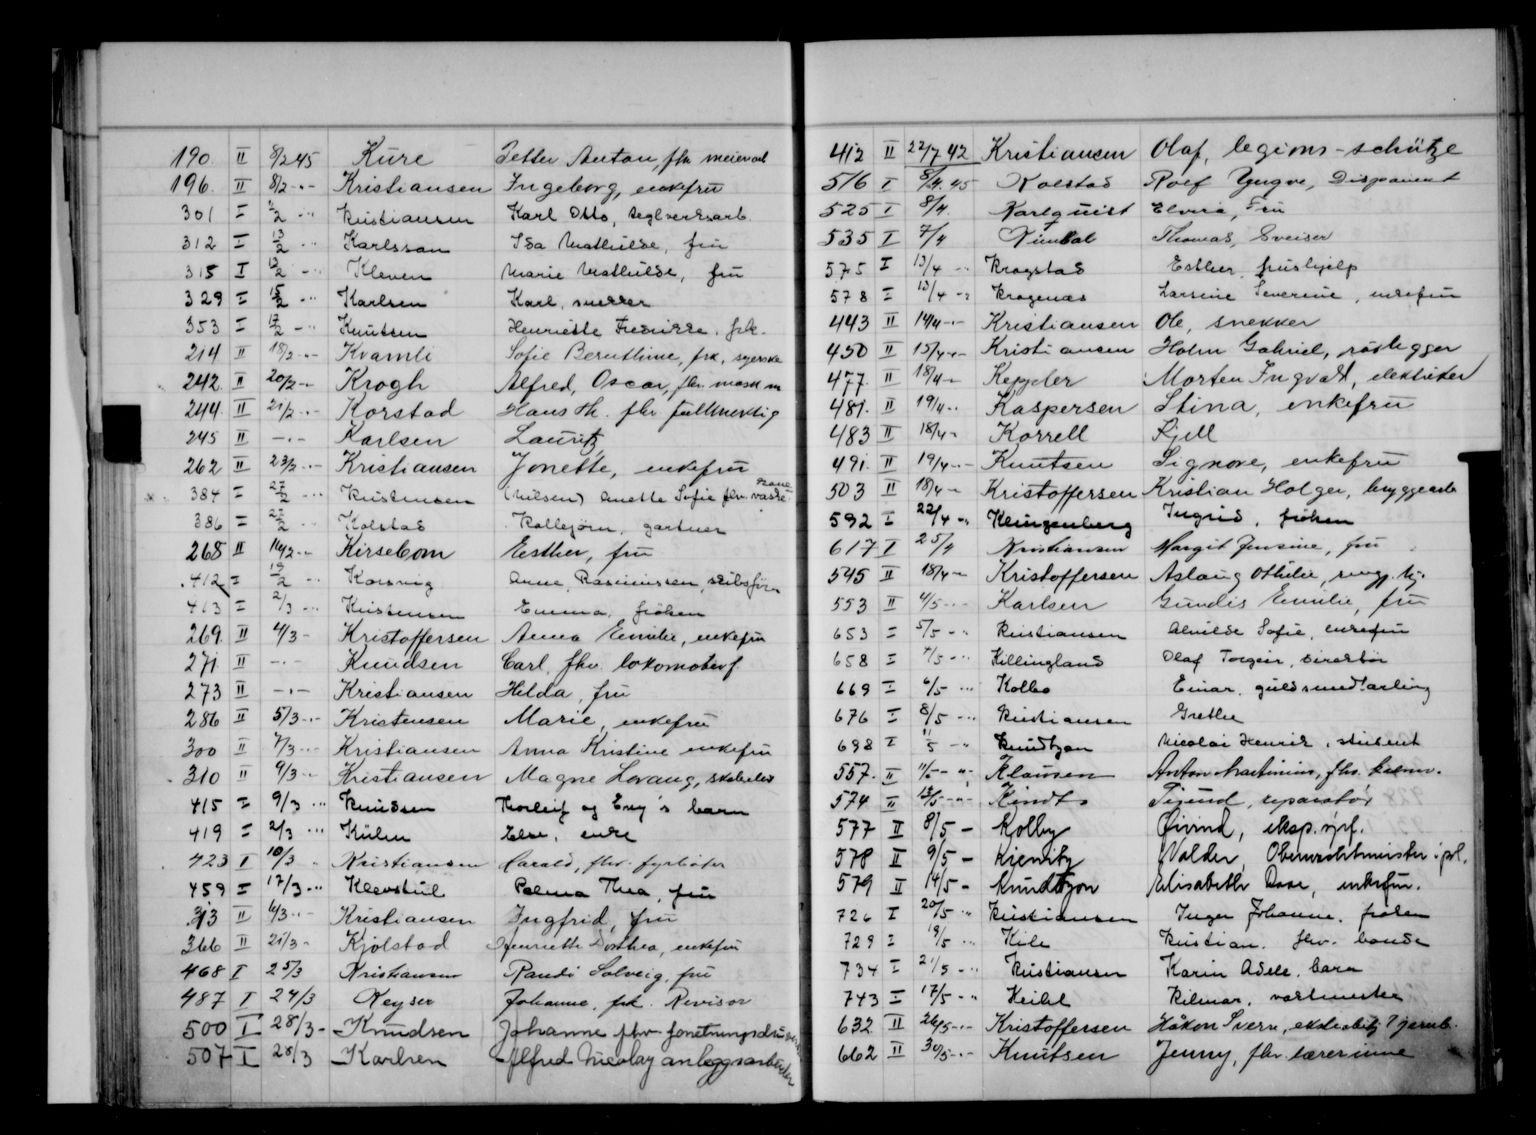 190. II 8/2 45 Kure Petter Anton, fhv. meieriarb
196. II 8/2 -"- Kristiansen Ingeborg, enkefru
301 I 2/2 -"- Kristiansen Karl Otto, teglverksarb.
312 I 13/2 -"- Karlsson Ida Mathilde, fru
315 I 13/2 -"- Kleven Marie Mathilde, fru
329 I 15/2 -"- Karlsen Karl, snekker
353 I 17/2 -"- Knutsen Henriette Fredrikke, frk.
214 II 18/2 -"- Kvamli Sofie Bernthine, frk, syerske
242 II 20/2 -"- Krogh Alfred, Oscar, fhv. mask m
244 II 21/2 -"- Korstad Hans Th. fhv fullmektig
245 II -"- Karlsen Lauritz
262 II 23/2 -"- Kristiansen Jonette, enkefru
384 I 27/2 -"- Kristensen (Nilsen) Anette Sofie fhv. vaske
386 I 27/2 -"- Kolstad Kallejørn, gartner
268 II -"- Kirsebom Esther, fru
412 I 19/2 -"- Korsvig Arne Rasmussen, skibsfør
413 I 2/3 -"- Kristensen Emma, frøken
269. II 4/3 - Kristoffersen Anna Emilie, enkefru
271 II -"- Knudsen Carl, fhv. lokomotivf.
273 II -"- Kristiansen Hilda, fru
286 II 5/3 -"- Kristensen Marie, enkefru
300 II 7/3 -"- Kristiansen Anna Kristine enkefru
310 II 9/3 -"- Kristiansen Magne Lovang,
415 I 9/3 -"- Knudsen Thorleif og Evy's barn
419 I 2/3 -"- Külen Else, enke
423 I 10/3 Kristiansen Harald, fhv. fyrbøter
459 I 17/3 -"- Klevstul Palma Thea, fru
313 II 6/3 -"- Kristiansen Ingfrid, fru
366 II 21/3 - Kjølstad Henriette Dorthea, enkefru
468 I 25/3 Kristiansen Randi Solveig, fru
487 I 24/3 Keyser Johanne, frk. Revisor
500 I 28/3 - Knudsen Johanne fhv forretningsdru
507 I 28/3 Karlsen Alfred Nicolay anleggsarbeider
412 II 22/7 42 Kristiansen Olaf, legions-schütze
516 I 5/4. 45 Kolstad Rolf Yngve, Disponent
525 I 8/4. Karlquist Elvira, Fru
535 I 7/4 Kimdal Thomas, Sveiser
575 I 13/4 -"- Kragstad Esther, hushjelp
578 I 13/4 -"- Kragenæs Larsine Severine, enkefru
443 II 14/4 -"- Kristiansen Ole, snekker
450 II 15/4 -"- Kristiansen Holm Gabriel, rørlegger
477. II 18/4 -"- Kepler Morten Ingvald, elektriker
481. II 19/4 -"- Kaspersen Stina, enkefru
483 II 18/4 -"- Korrell Kjell
491. II 19/4 -"- Knutsen Signore, enkefru
503 II 18/4 -"- Kristoffersen Kristian Holger, bryggearb
592 I 22/4 -"- Klingenberg Ingrid, frøken
617 I 25/4 Kristiansen Margit Jensine, fru
545 II 18/4 -"- Kristoffersen Aslaug Othilie, rengj. hj.
553 II 4/5 -"- Karlsen Gundis Emilie, fru
653 I 5/5 -"- Kristiansen Alvilde Sofie, enkefru
658 I 7/5 -"- Killingland Olaf Torgeir, direktør
669 I 6/5 -"- Kolbo Einar, guldsmedlærling
676 I 8/5 -"- Kristiansen Grethe
698 I 11/5 -"- Knudtzon Nicolai Henrik, student
557. II 11/5 -"- Klausen Anton Martinius, fhv.
574 II 13/5 -"- Kindt Sigurd, reparatør
577 II 8/5 - Kolby Øivind, eksp.sjef.
578 II 9/5 - Valder, Oberwachtmeister i pol.
579 II 14/5 - Knudtzon Elisabeth Dose, enkefru.
726 I 20/5 -"- Kristiansen Inger Johanne, frøken
729 I 19/5 -"- Kile Kristian. fhv. bonde
734 I 21/5 -"- Kristiansen Karin Adele, barn
743 I 17/5 -"- Keilel Hilmar, vaktmester
632 II 26/5 -"- Kristoffersen Håkon Svern,
662 II 30/5 -"- Knutsen Jenny, fhv lærerinne